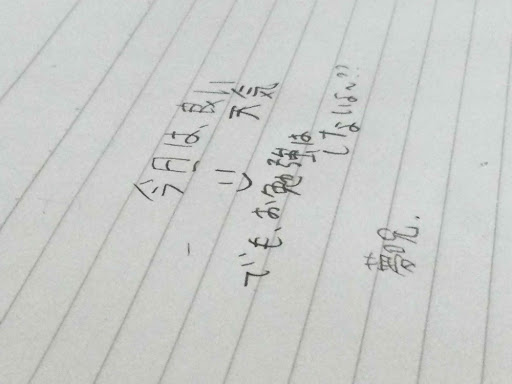 今日は、良い
天気
でも、お勉強は
しないは〜??